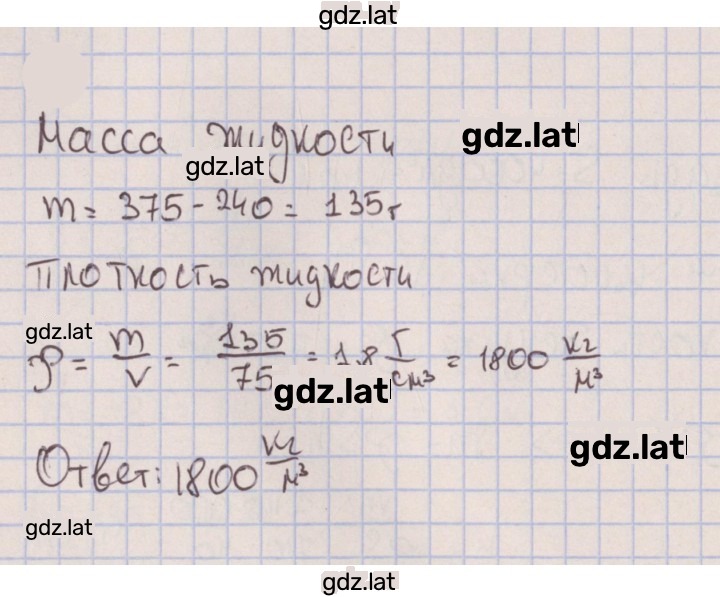 gdz.lat
Масса жидкости
gdz.lat
gdz.lat
m = 375 - 240 = 135 г
Плоткость жидкости
gdz.lat
ρ = m/V = 135/75 = 1,8 г/см³ = 1800 кг/м³
gdz.lat
Ответ: 1800 кг/м³
gdz.lat
gdz.lat
gdz.lat